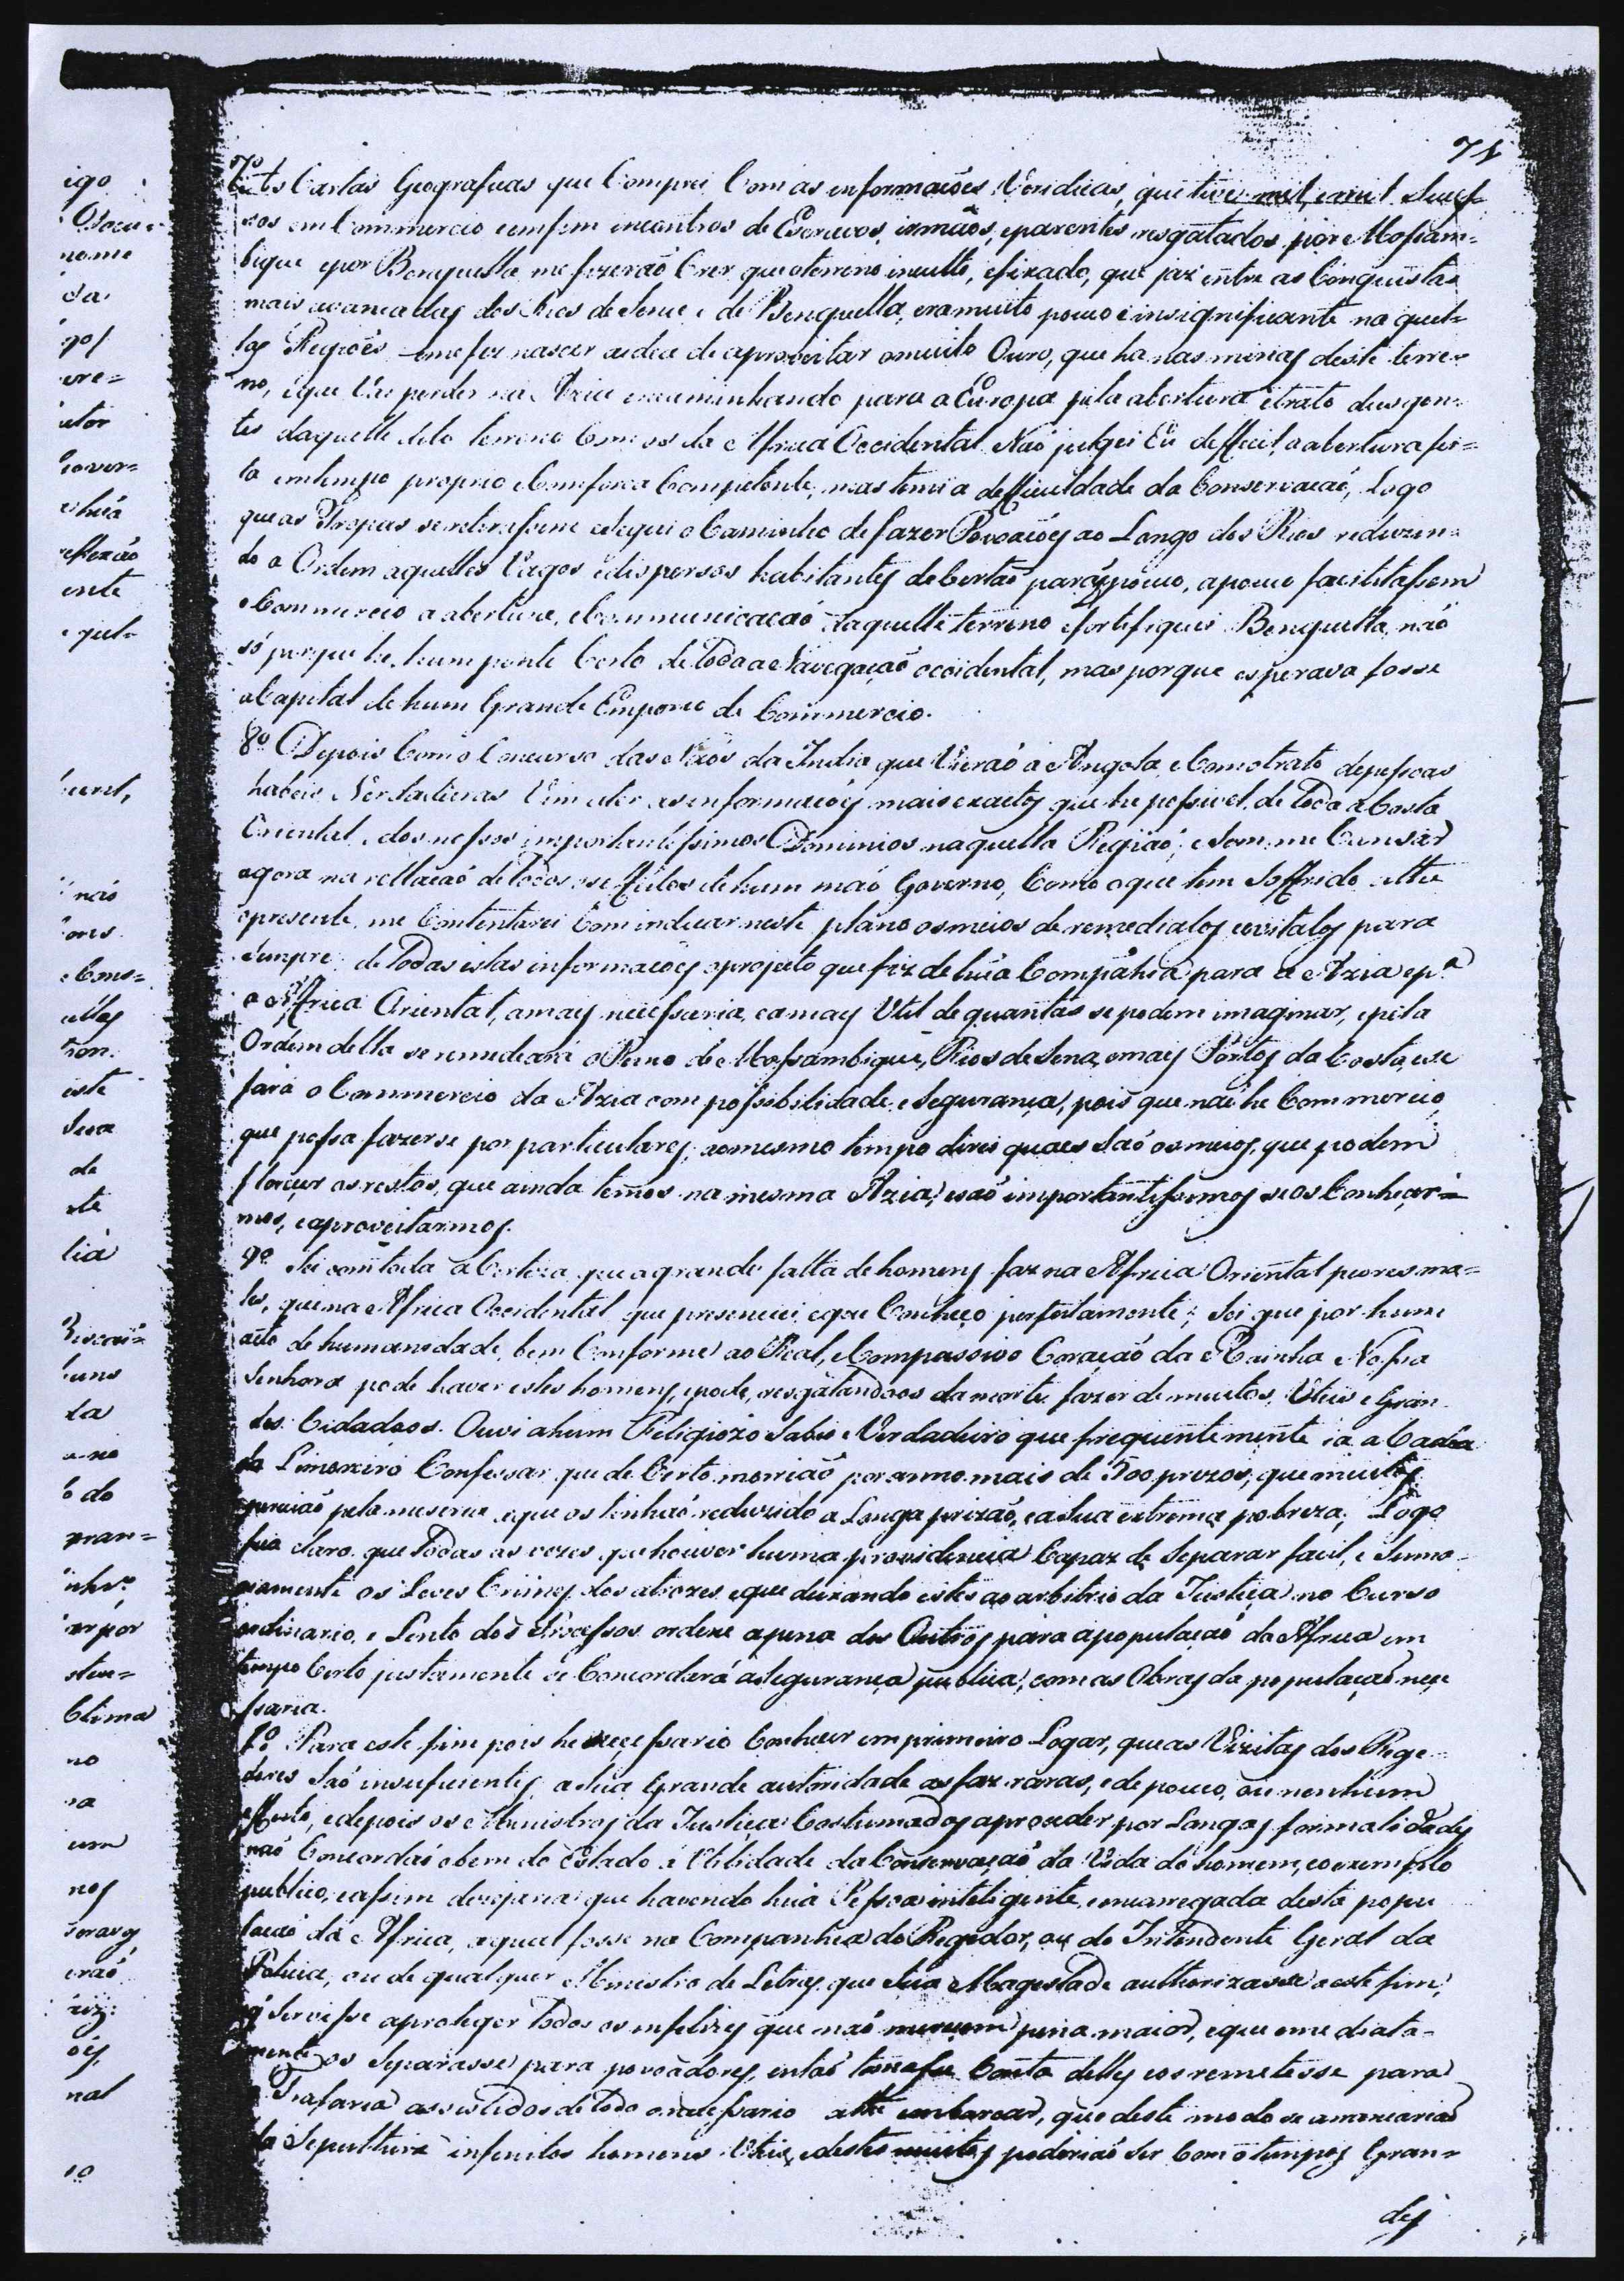 71
7º
Cartas Geograficas que Comprei Com as informaçoẽs Veridicas, que tive
em Commercio emfim incontros de Escravos, irmaõs, eparentes resgatados por Mossam=
bique epor Benguella me fizeraõ Crer queoterreno inculto, efixado, que jaz entre as Conquistas
mais avancadas dos Rios de Sena e de Benguella, eramuito pouco einsignificante na quel=
las Regioẽs emefez nascer aidea de aproveitar omuito Ouro, que ha nas minas deste terre=
no, eque Vai perder na Azia encaminhando para a Europa pela abertura etrato dasgen=
tes daquelle dito terreno Com os da Africa Occidental. Naõ julguei Eu defficil, aabertura fei=
ta emtempo proprio eComforca Competente, mas temi a defficuldade da Conservacaõ, Logo
queas Tropas seretirassem eSegui o Caminho de fazer Povoaçoẽs ao Longo dos Rios reduzin=
do a Ordem aquelles Vagos edispersos habitantes do Certaõ para q̃ pouco, apouco facilitassem
oCommercio a abertura, eCommunicacaõ daquelle terreno efortefiquei Benguella, naõ
só porque he hum ponte Certo de Toda a Navegaçaõ occidental, mas porque esperava fosse
aCapital de hum Grande Emporio de Commercio.
8º Depois Com o Concurso das Náos da India que Vieraõ a Angola, eComotrato depessoas
habeis, Verdadeiras Vim ater asinformaçoẽs mais exactas que he possivel, de Toda a Costa
Oriental, dos nossos importantissimos Dominios naquella Regiaõ; e Sem me Cansar
agora na rellacaõ de Todos os effeitos de hum máo Governo, Como oque tem Soffrido athe
opresente, me Contentarei Com indicar neste plano osmeios de remedialos, eevitalos para
Sempre: de Todas estas informaçoẽs oprojecto que fiz de huã Companhia para a Azia ep.ª
a Africa Oriental, amais necessaria, eamais Util de quantas se podem imaginar, epela
Ordem della seremediará o Reino de Mossambique, Rios de Sena, emais Portos da Costa, ese
fará o Commercio da Azia com possibilidade, eSegurança, pois que naõ he Commercio
que possa fazerse por particulares; aomesmo tempo direi quaes Saõ osmeios, que podem
florecer os restos, que ainda temos na mesma Azia, esaõ importantissimos seos Conhecer=
mos, eaproveitarmos.
9º Sei comtoda aCerteza que agrande falta de homens faz na Africa Oriental peores ma=
les, quena Africa Occidental que presenciei eque Conheço perfeitamente; Sei que por hum
acto de humanidade, bem Conforme ao Real, eCompassivo Coraçaõ da Rainha Nossa
Senhora pode haver estes homens, epode, resgatandoos damorte fazer de muitos, Uteis e Gran=
des Cidadaos. Ouvi ahum Religiozo Sabio e Verdadeiro que frequentemente ia a Cadea
do Limoeiro Confessar que de Certo morriaõ por anno mais de 500 prezos, que muitos
pereciaõ pela miseria aque os tinhaõ reduzido a Longa prizaõ, easua extrema pobreza; Logo
fica claro, que Todas as vezes que houver huma providencia Capaz de Separar facil, e Suma=
riamente os Leves Crimes dos atrozes eque deixando estes ao arbitrio da Justiça no Curso
ordinario, e Lento dos Processos ordene apena dos Outros para apopulaçaõ da Africa em
tempo Certo justamente se Concordará aSegurança publica, com as Obras da populaçaõ nece
ssaria.
1º Para este fim pois he necessario Conhecer em primeiro Logar, que as Vizitas dos Rege=
dores Saõ insuficientes, a Sua Grande autoridade as faz raras, e de pouco, ou nenhum
effeito, edepois os Ministros da Justiça Costumados aproceder por Longas formalidades
naõ Concordaõ obem do Estado a Utilidade da Conservaçaõ da Vida do homem, eoexemplo
publico, eassim desejaria que havendo huã Pessoa inteligente, encarregada desta popu
lacaõ da Africa, aqual fosse na Companhia do Regedor, ou do Intendente Geral da
Policia, ou de qualquer Ministro de Letras que Sua Magestade authorizasse aeste fim,
q̃ Servisse aproteger Todos os infelizes que naõ merecem pena maior, eque emediata=
mente os Separasse para povoadores, entaõ tomasse Conta delles eosremetesse para
a Trafaria assistidos de Todo onecessario athe embarcar, que deste modo se arrancariaõ
da Sepultura infinitos homens Uteis, edestes muitos poderiaõ Ser Com otempos Gran=
des
igo
nome
da
gos
ere=
utor
Gover=
ehuã
reflexaõ
ente
e quel=
naõ
eComo=
ellas
este
Sua
de
ste
lia
huns
da
o do
gran=
ar por
Clima
no
ra
um
nos
eraõ
nal